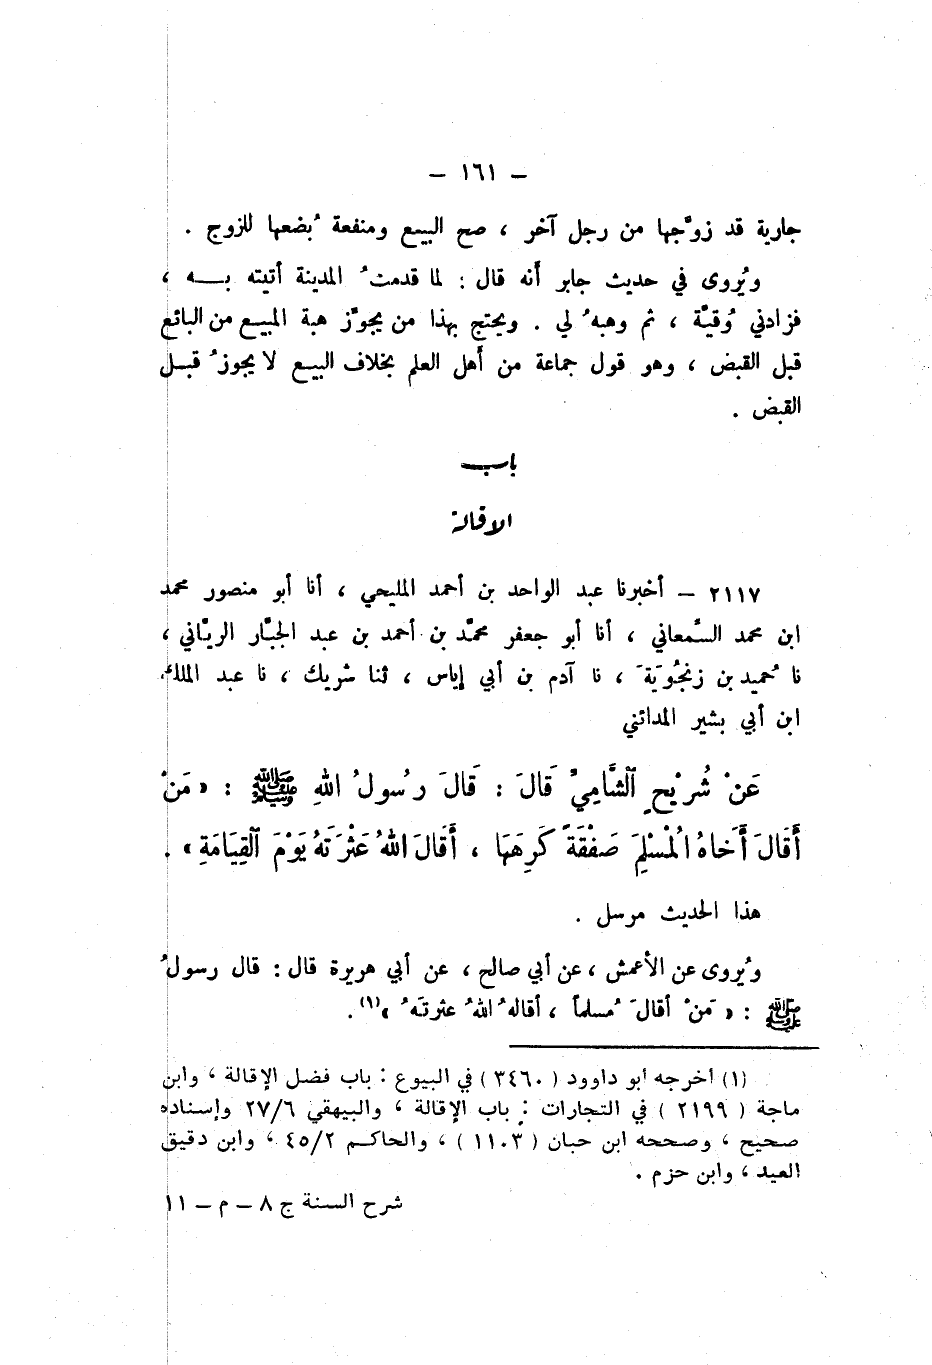 – ١٦١ –
جارية قد زوَّجها من رجل آخر ، صح البيع ومنفعة بُضعها للزوج .
ويُروى في حديث جابر أنه قال : لما قدمتُ المدينة أتيته بـــه ،
فزادني وُقيَّة ، ثم وهبهُ لي . ويحتج بهذا من يجوِّز هبة المبيـع من البائع
قبل القبض ، وهو قول جماعة من أهل العلم بخلاف البيـع لا يجوزُ قبـل
القبض .
باب
الإقالة
٢١١٧ – أخبرنا عبد الواحد بن أحمد المليحي ، أنا أبو منصور محمد
ابن محمد السَّمعاني ، أنا أبو جعفر محمَّد بن أحمد بن عبد الجبَّار الريَّاني ،
نا حُميد بن زنجُوَيَةَ ، نا آدم بن أبي إياس ، ثنا شريك ، نا عبد الملك
ابن أبي بشير المدائني
عَنْ شُرَيْحٍ ٱلشَّامِيِّ قَالَ : قَالَ رَسُولُ اللهِ ﷺ : « مَنْ
أَقَالَ أَخَاهُ الْمُسْلِمَ صَفْقَةً كَرِهَهَا ، أَقَالَ اللهُ عَثْرَتَهُ يَوْمَ ٱلْقِيَامَةِ » .
هذا الحديث مرسل .
ويُروى عن الأعمش ، عن أبي صالح ، عن أبي هريرة قال : قال رسولُ
ﷺ : « مَنْ أقالَ مُسلماً ، أقالهُ اللهُ عثرتَهُ »(١) .
(١) أخرجه أبو داوود ( ٣٤٦٠ ) في البيوع : باب فضل الإقالة ، وابن
ماجة ( ٢١٩٩ ) في التجارات : باب الإقالة ، والبيهقي ٢٧/٦ وإسناده
صحيح ، وصححه ابن حبان ( ١١٠٣ ) ، والحاكـم ٤٥/٢ ، وابن دقيق
العيد ، وابن حزم .
شرح السنة ج ٨ – م – ١١